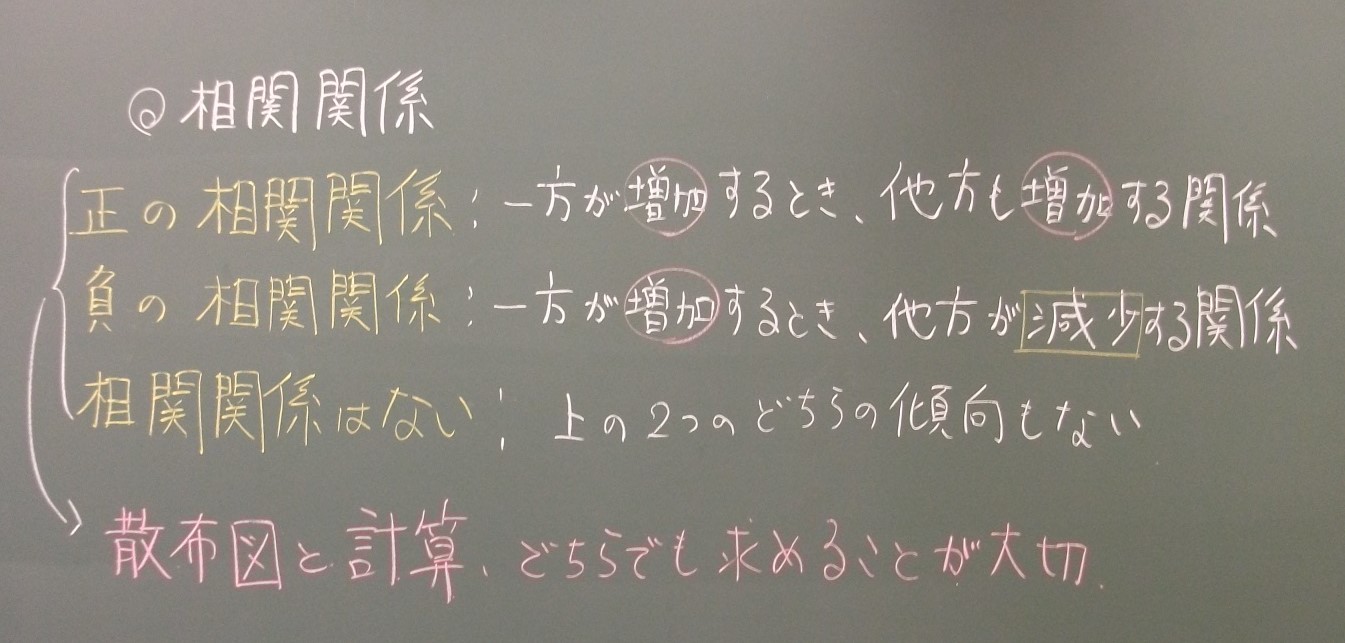 ◎相関関係
正の相関関係：一方が増加するとき、他方も増加する関係
負の相関関係：一方が増加するとき、他方が減少する関係
相関関係はない：上の2つのどちらの傾向もない
散布図と計算、どちらでも求めることが大切.